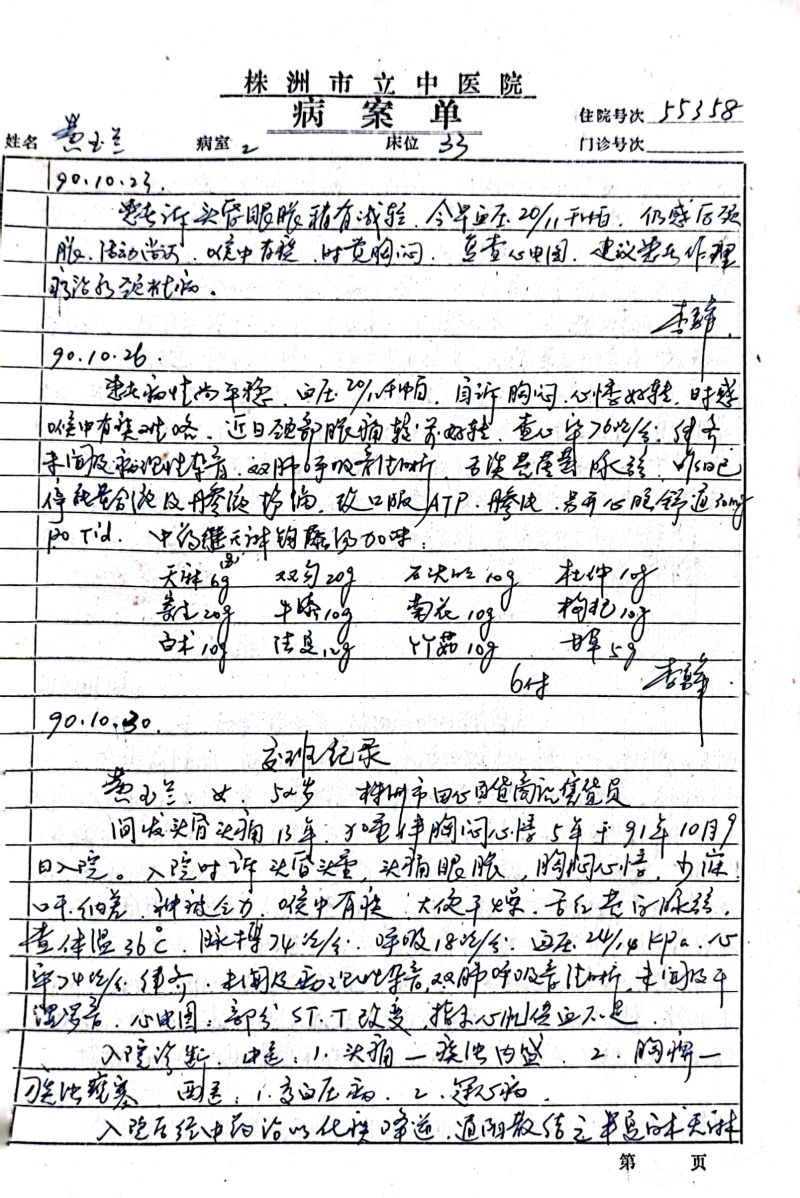 株洲市立中医院
病案单
住院号次 55358
姓名 黄玉兰 病室 2 床位 33 门诊号次
90.10.23.
患者诉头昏眼胀稍有减轻，今早血压20/11千帕，仍感后颈
胀，活动尚可，喉中有痰，时觉胸闷，复查心电图，建议患者作理
疗治疗颈椎病。
90.10.26.
患者病情尚平稳，血压20/11千帕，自诉胸闷、心悸好转，时感
喉中有痰难咯，近日颈部胀痛较前好转，查心率76次/分，律齐，
未闻及病理性杂音，双肺呼吸音清晰，舌淡 脉弦，昨日已
停能量合液及丹参液静滴，改口服ATP、丹参片，另开心脑舒通30mg
po Tid. 中药继天麻钩藤汤加味：
天麻6g 双勾20g 石决明10g 杜仲10g
寄生20g 牛膝10g 菊花10g 枸杞10g
白术10g 法夏12g 竹茹10g 甘草5g
6付
90.10.30.
交班记录
黄玉兰，女，52岁 株洲市田心百货商店售货员
间发头昏头痛13年，加重伴胸闷心悸5年于91年10月9
日入院。入院时诉头昏头重，头痛眼胀，胸闷心悸，少寐
口干纳差，神疲乏力，喉中有痰，大便干燥，舌红苔白脉弦，
查体温36℃，脉搏74次/分，呼吸18次/分，血压24/14KPa，心
率74次/分，律齐，未闻及病理性杂音，双肺呼吸音清晰，未闻及干
湿罗音，心电图：部分ST.T改变，指示心肌供血不足。
入院诊断，中医：1.头痛—痰浊内盛 2.胸痹—
痰浊壅塞 西医：1.高血压病 2.冠心病
入院后经中药治以化痰降逆，通阳散结之半夏白术天麻
第 页